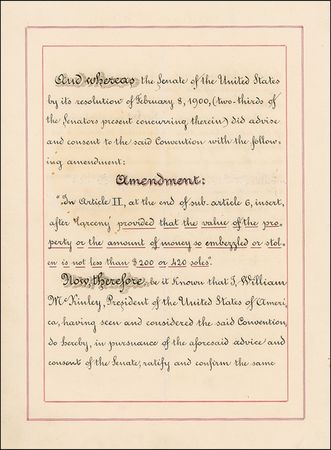 And whereas the Senate of the United States
by its resolution of February 8, 1900, (two-thirds of
the Senators present concurring therein) did advise
and consent to the said Convention with the follow-
ing amendment:
Amendment:
"In Article II, at the end of sub-article 6, insert,
after "larceny" provided that the value of the pro-
perty or the amount of money so embezzled or stol-
en is not less than $200 or 420 soles".
Now, therefore, be it known that I, William
McKinley, President of the United States of Ameri-
ca, having seen and considered the said Convention,
do hereby, in pursuance of the aforesaid advice and
consent of the Senate, ratify and confirm the same